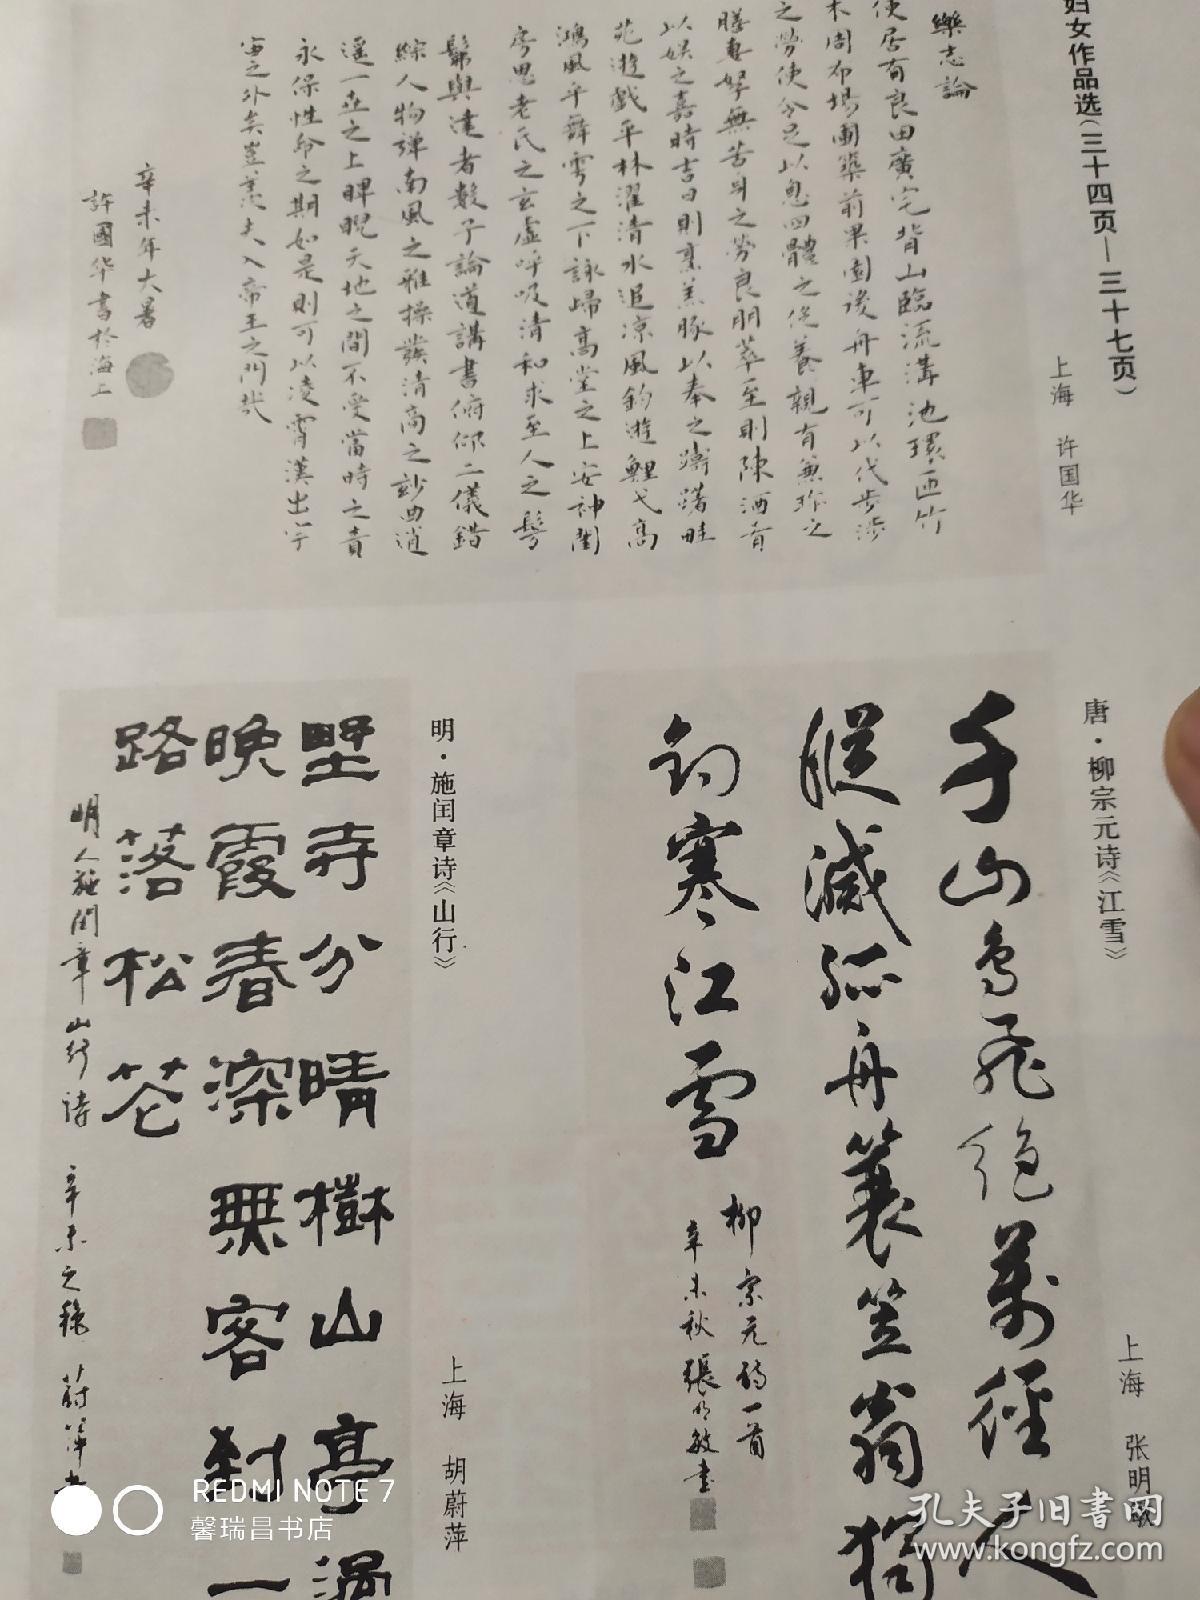 妇女作品选(三十四页—三十七页)
上海 许国华
樂志論
使居有良田廣宅背山臨流溝池環匝竹
木周布場圃築前果園後舟車可以代步涉
之勞使令足以息四體之役養親有兼珍之
膳妻孥無苦身之勞良朋萃至則陳酒肴
以娱之嘉時吉日則烹羔豚以奉之躊躇畦
苑遊戲平林濯清水追凉風釣遊鯉弋高
鴻風乎舞雩之下詠歸高堂之上安神閨
房思老氏之玄虛呼吸清和求至人之髣
髴與達者數子論道講書俯仰二儀錯
綜人物彈南風之雅操發清商之妙曲逍
遥一世之上睥睨天地之間不受當時之責
永保性命之期如是則可以凌霄漢出宇
宙之外矣豈羡夫入帝王之門哉
辛未年大暑
許國华書於海上
唐·柳宗元诗《江雪》
上海 张明敏
千山鸟飛絶萬徑人
蹤滅孤舟蓑笠翁獨
釣寒江雪
柳宗元詩一首
辛未秋張明敏書
明·施闰章诗《山行》
上海 胡蔚萍
野寺分晴樹山亭過
晚霞春深無客到一
路落松花
明人施閏章山行诗 辛未之穐 蔚萍書
REDMI NOTE 7
馨瑞昌书店
孔夫子旧书网
www.kongfz.com